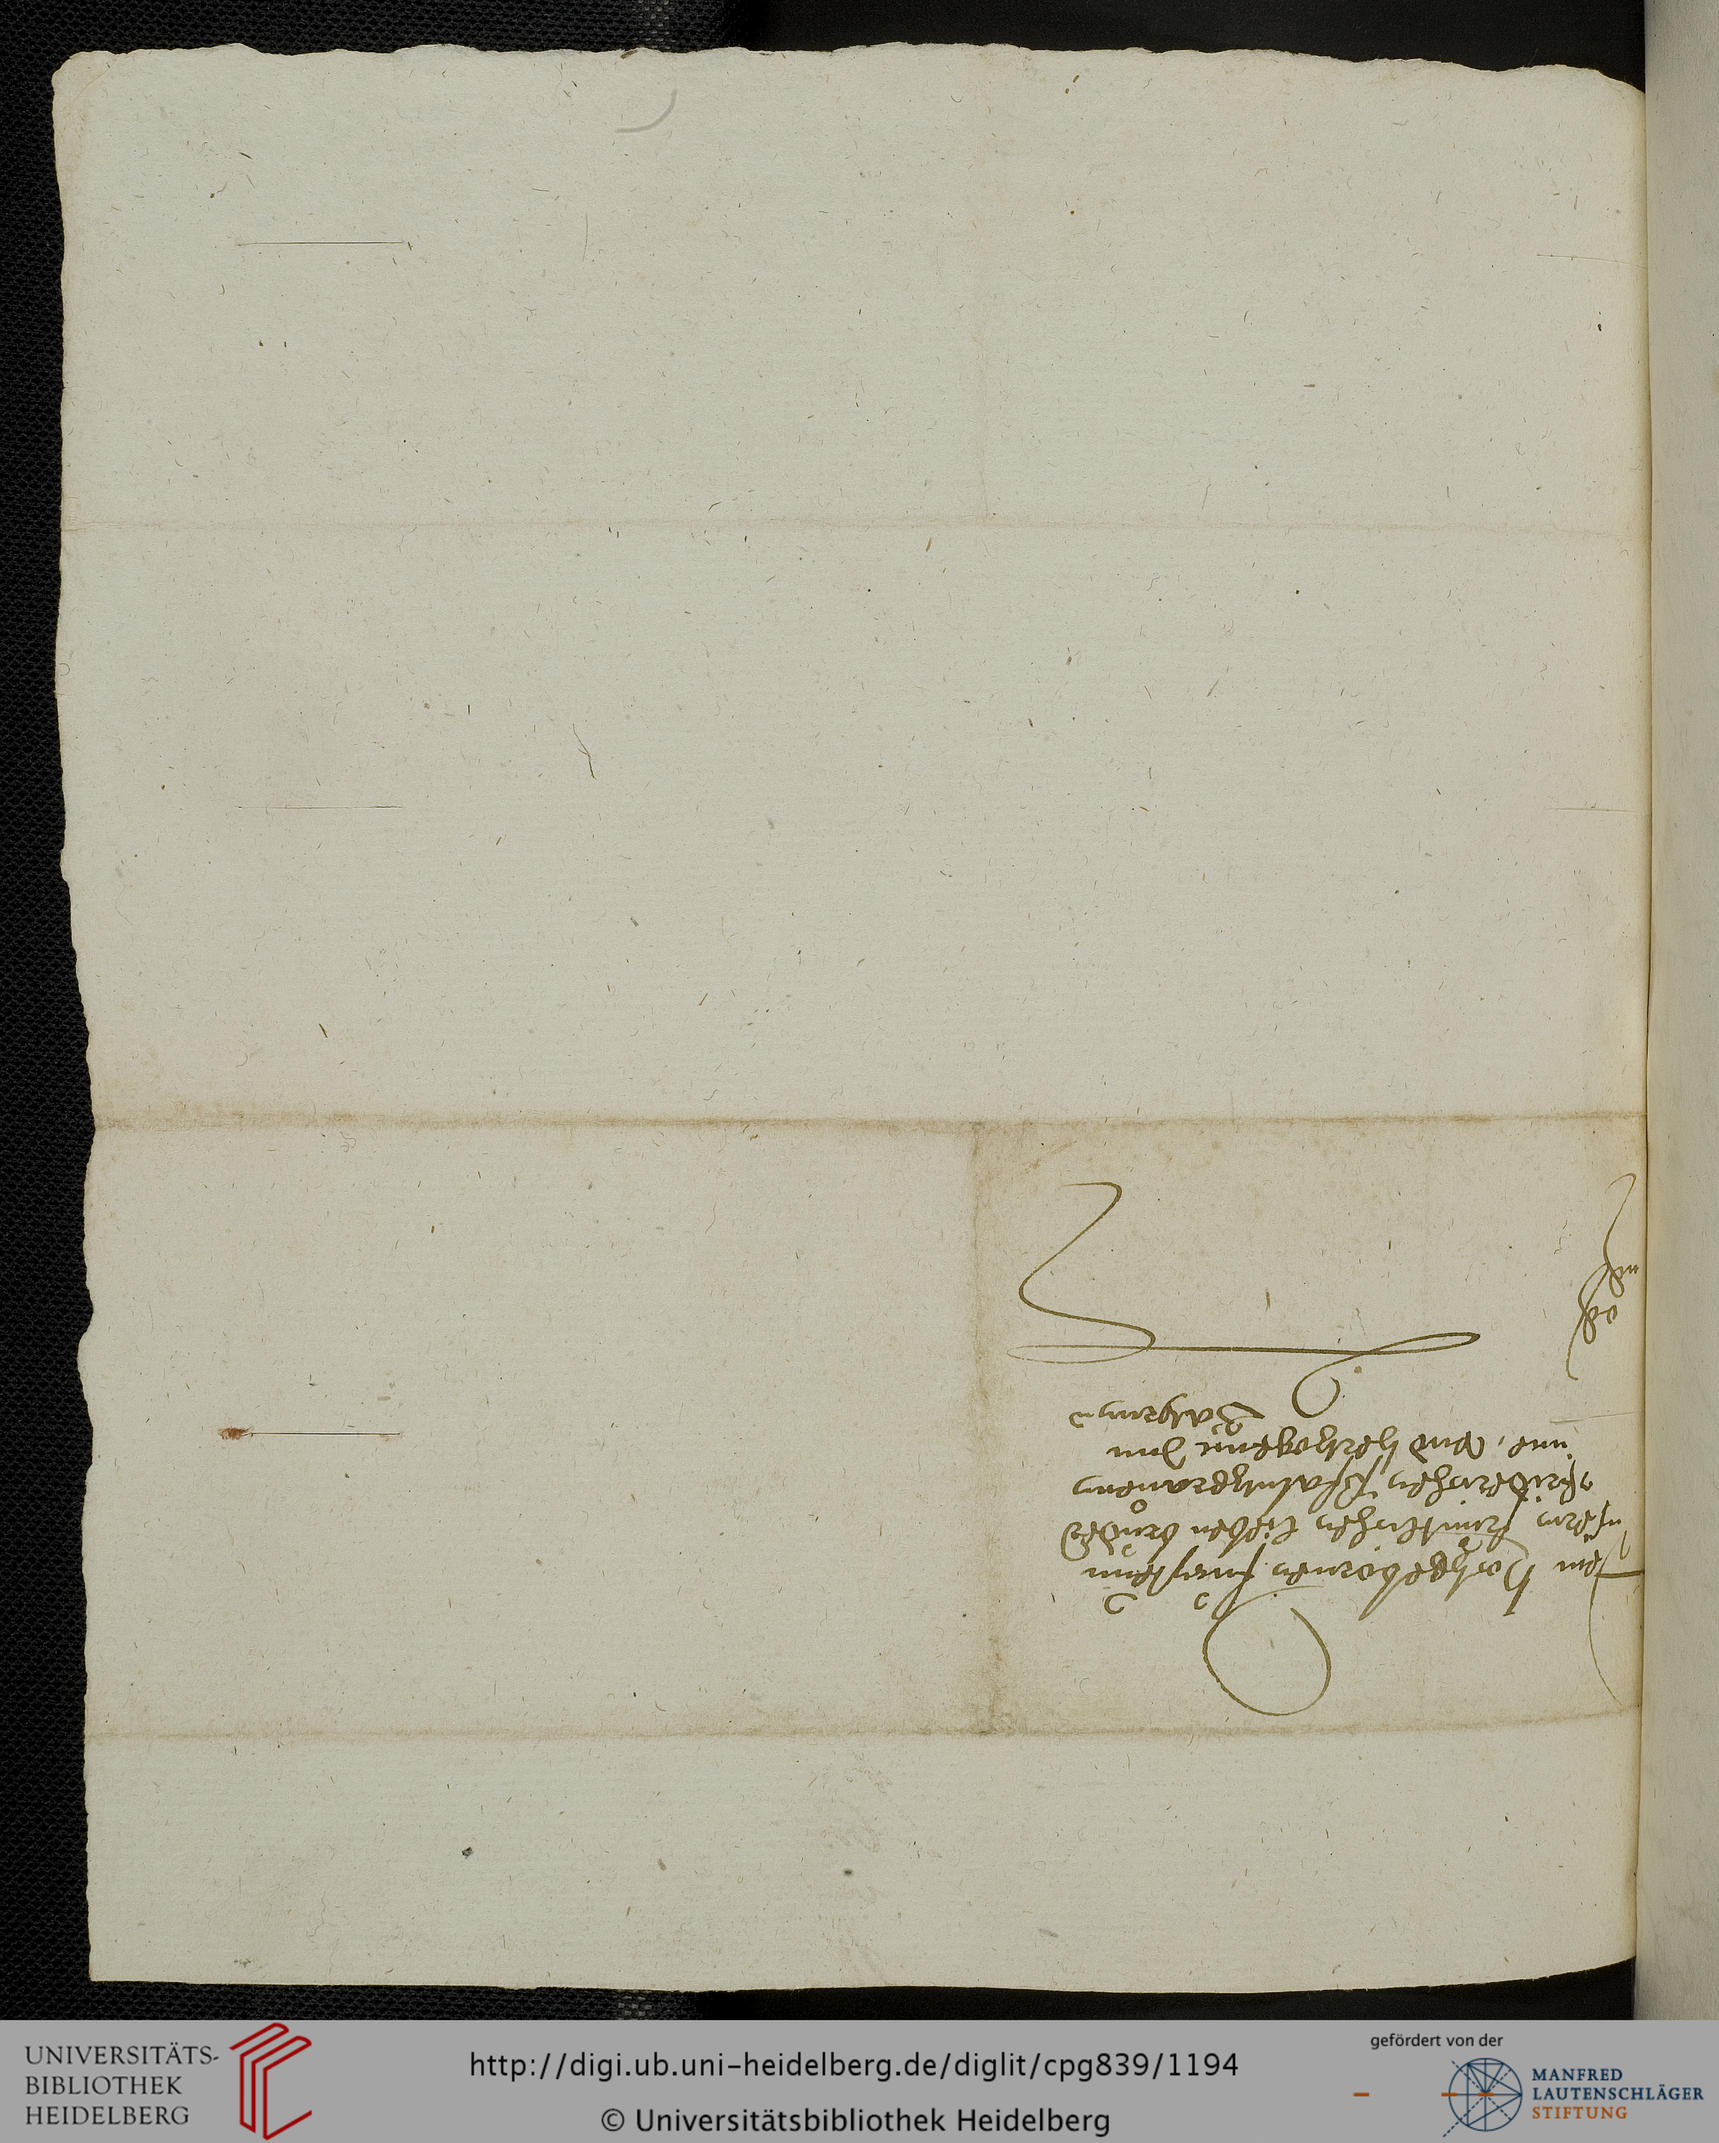 Hochgebornen fursten
fruntlichen lieben bruder
Friderichen Pfaltzgrauen
vnd Hertzogen Inn
Baigernn
UNIVERSITÄTS-
BIBLIOTHEK
HEIDELBERG
http://digi.ub.uni-heidelberg.de/diglit/cpg839/1194
© Universitätsbibliothek Heidelberg
gefördert von der
MANFRED
LAUTENSCHLÄGER
STIFTUNG